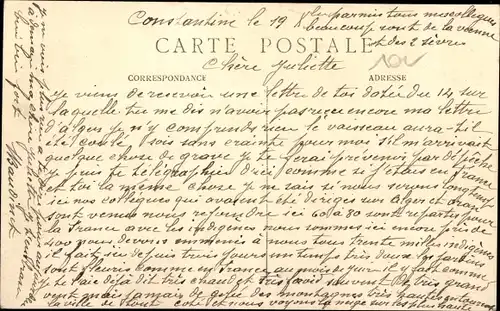 Constantine le 19 Xbre parmis tous mes collègues
beaucoup sont de la vienne
CARTE POSTALE et des 2 sèvres
Chère Juliette
CORRESPONDANCE ADRESSE
Je viens de recevoir une lettre de toi datée du 14 sur
laquelle tu me dis n'avoir pas reçu encore ma lettre
d'alger je n'y comprends rien le vaisseau aura-t-il
été coulé sois sans crainte pour moi s'il m'arrivait
quelque chose de grave je te ferai prévenir par dépêche
je puis te télégraphier d'ici comme si j'étais en france
et toi la même chose je ne sais si nous serons longtemps
ici nos collègues qui avaient été dirigés sur Alger et oran
sont venus nous rejoindre ici 60 à 80 sont repartis pour
la france avec les indigènes nous sommes ici encore près de
400 nous devons emmener à nous tous trente milles indigènes
il fait ici depuis trois jours un temps très doux les jardins
sont fleuris comme en france au mois de juin il y fait comme
je l'ai déjà dit très chaud et très froid souvent de très grand
vent mais jamais de gelée des montagnes très hautes entourent
la ville de tout coté et nous voyons la neige sur les plus hautes